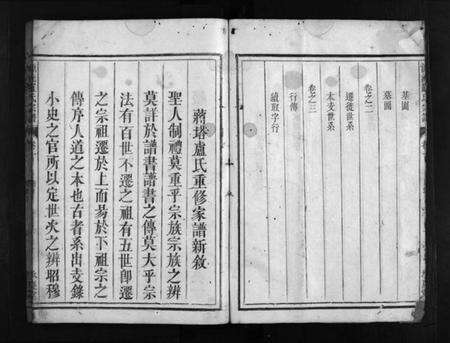 基圖
墓圖
卷之二
遷徙世系
本支世系
卷之三
行傳
續班字行
蔣塔盧氏重修家譜新敘
聖人制禮莫重乎宗族宗族之辨
莫詳於譜書譜書之傳莫大乎宗
法有百世不遷之祖有五世卽遷
之宗祖遷於上而易於下祖宗之
傳序人道之本也古者系出支錄
小史之官所以定世次之辨昭穆